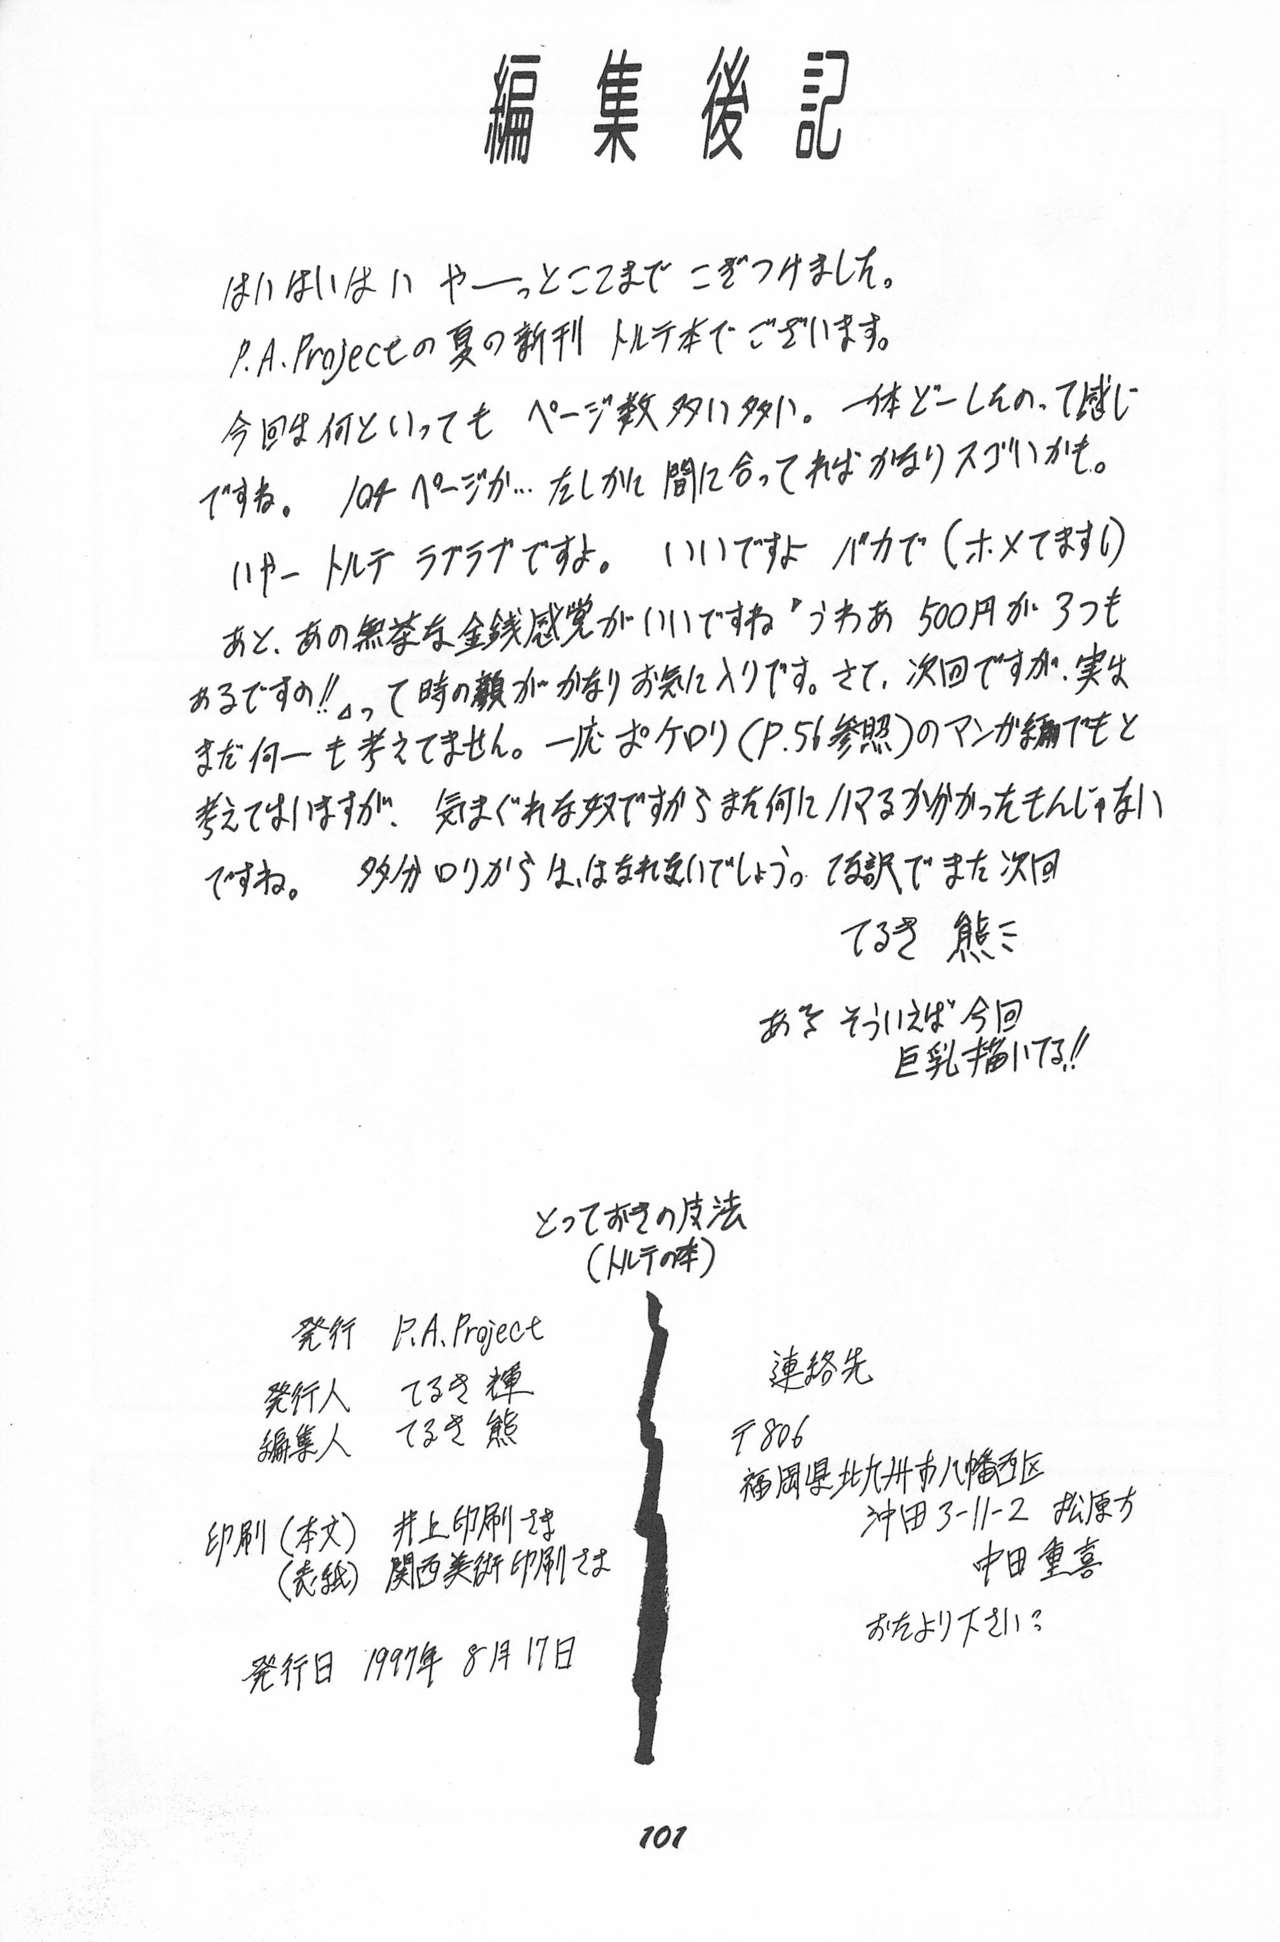 編集後記
はいはいはい やーっとここまで こぎつけました。
P.A.Projectの夏の新刊 トルテ本でございます。
今回は何といっても ページ数多い多い。一体どーしたのって感じ
ですね。 104ページか… たしかに 間に合ってれば かなりスゴいかも。
いやー トルテ ラブラブですよ。 いいですよ バカで(ホメてます!)
あと、あの無茶な金銭感覚がいいですね「うわあ 500円が 3つも
あるですの!!」って時の顔がかなりお気に入りです。さて、次回ですが、実は
まだ何ーも考えてません。一応ポケロリ(P.56参照)のマンガ編でもと
考えてはいますが、気まぐれな奴ですからまた何にハマるか分かったもんじゃない
ですね。 多分ロリからは、はなれないでしょう。 てな訳でまた次回
てるき 熊ミ
あそういえば 今回
巨乳描いてる!!
とっておきの皮法
(トルテの本)
発行 P.A.Project
発行人 てるき 輝
編集人 てるき 熊
印刷(本文) 井上印刷さま
(表紙) 関西美術印刷さま
発行日 1997年 8月17日
連絡先
〒806
福岡県北九州市八幡西区
沖田3-11-2 松原方
中田重喜
おたより下さい
101